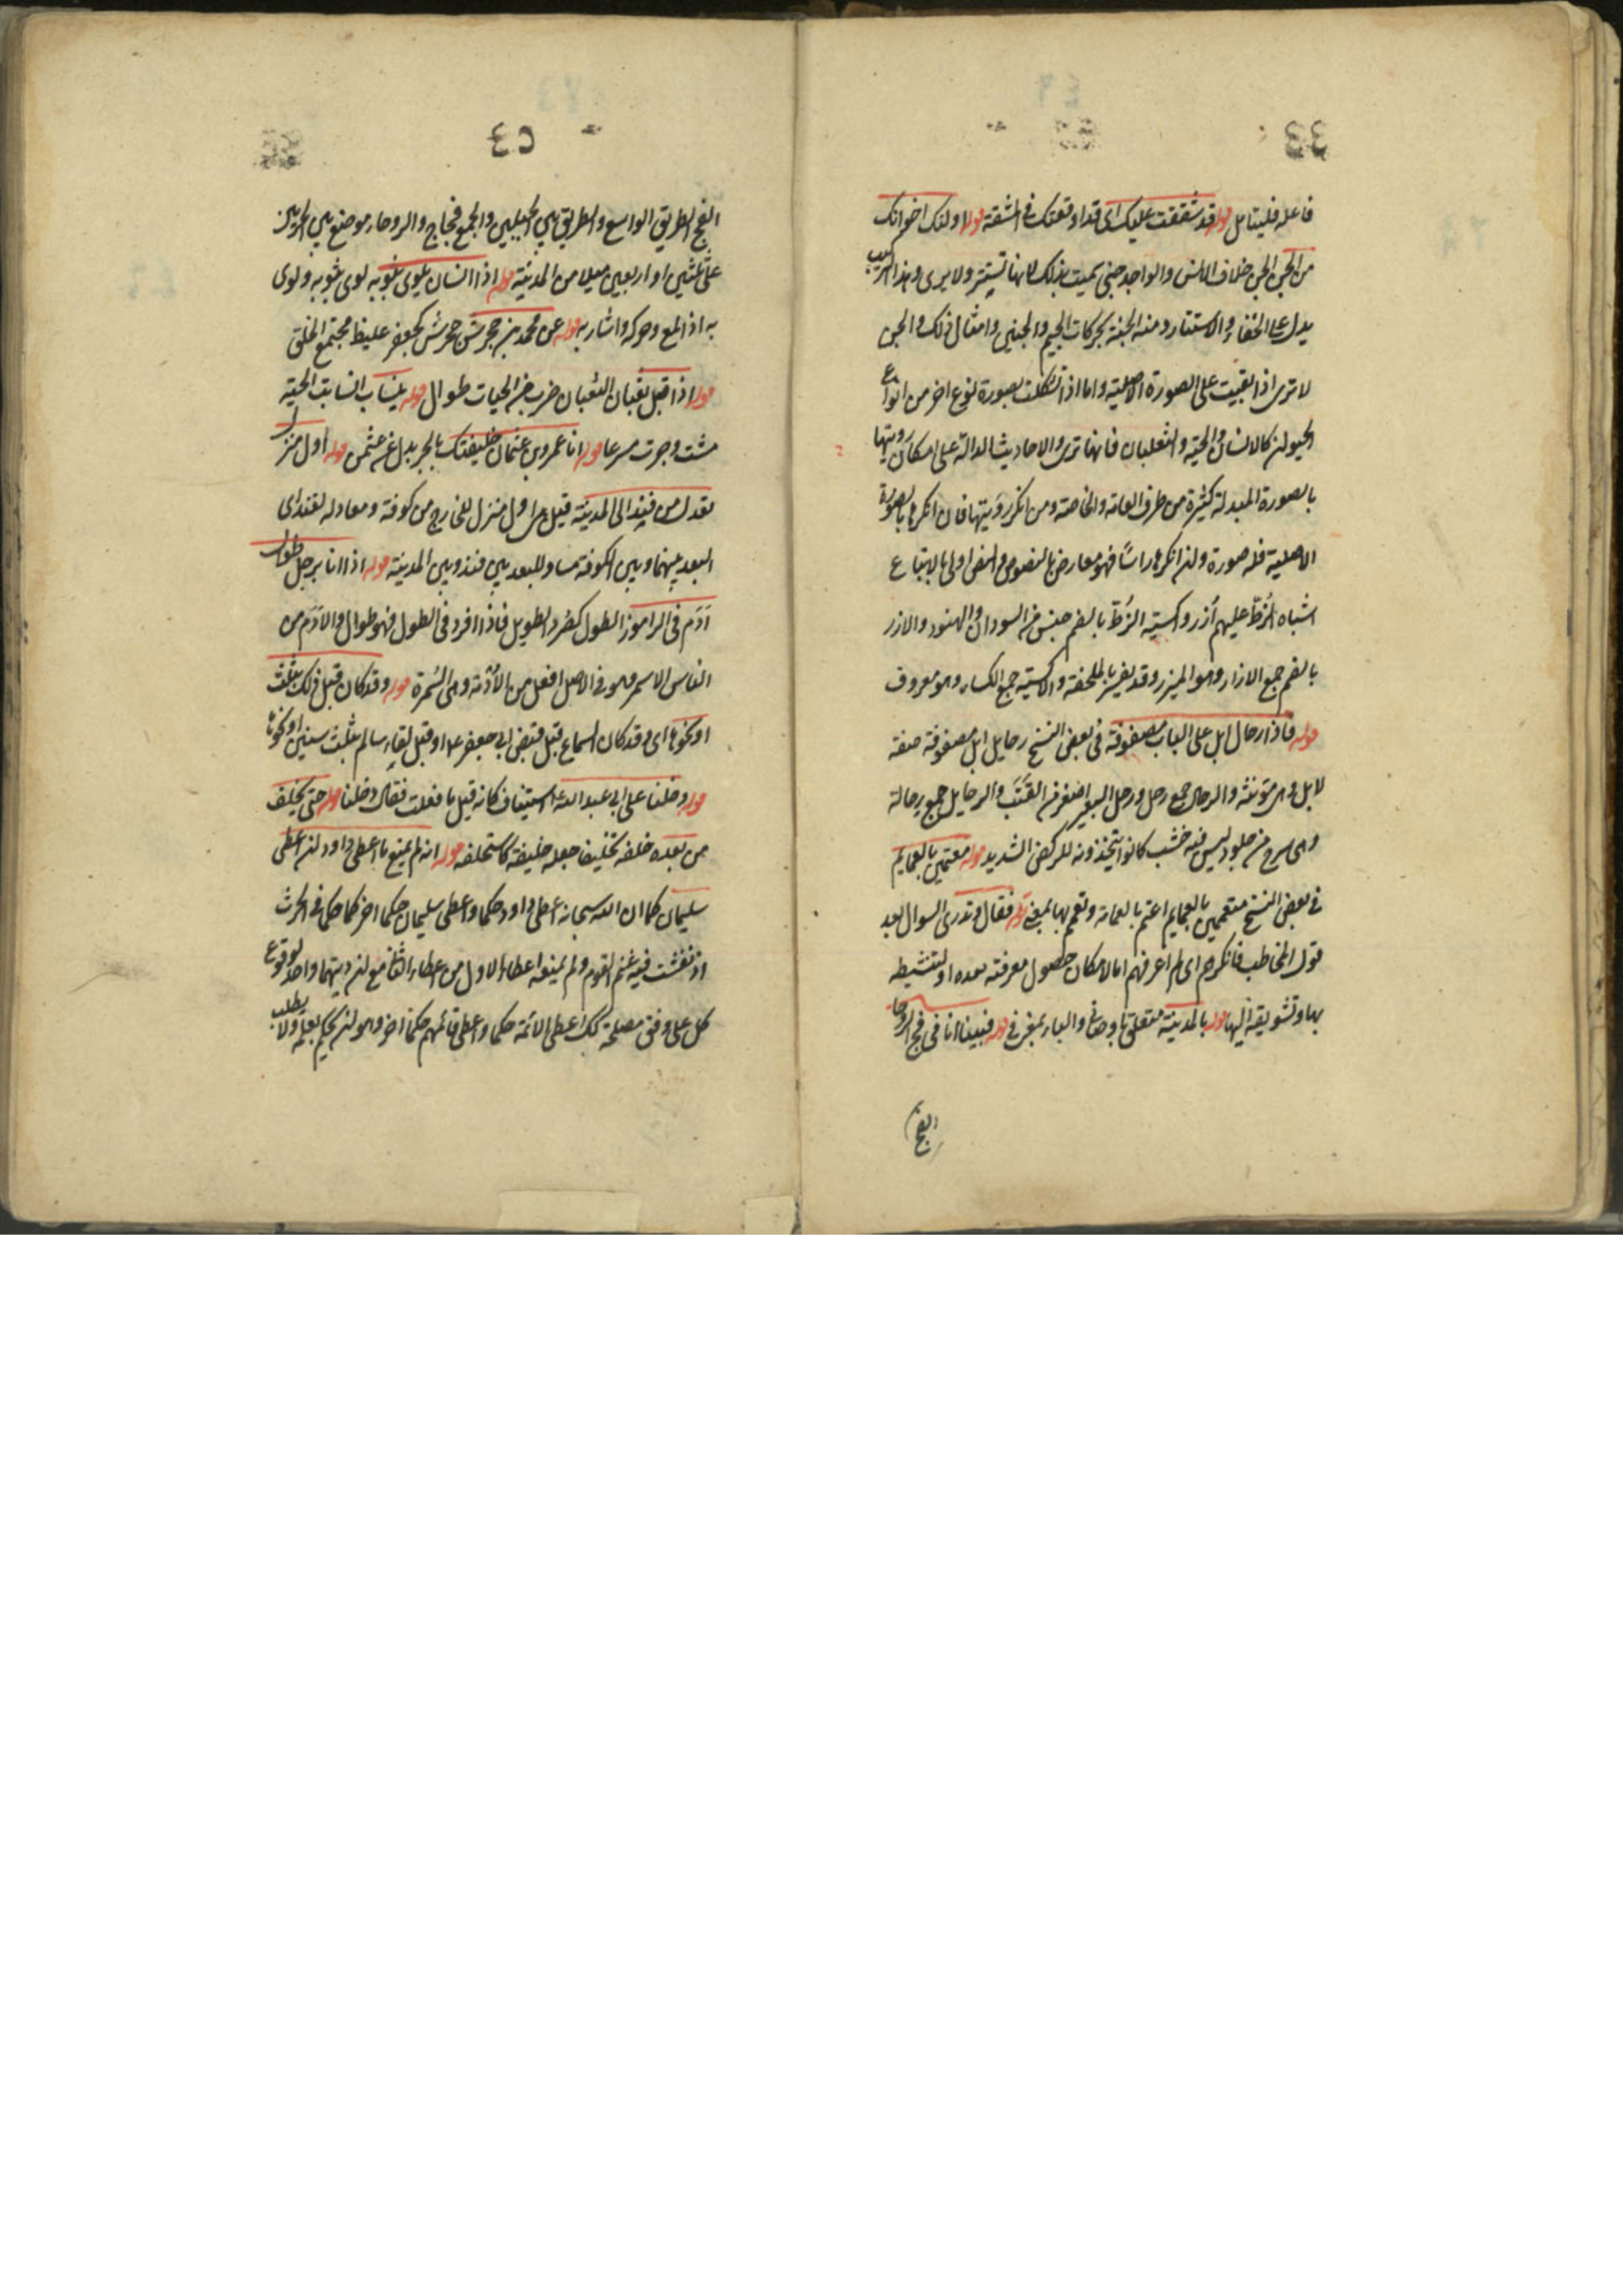 فاعله فليتامل قوله قد شققت عليك اى قد اوقعتك فى المشقة قوله اولئك اخوانك
من الجن الجن خلاف الانس والواحد جنى سميت بذلك لانها تستتر ولا يرى وهذا التركيب
يدل على الخفاء والاستتار ومنه الجنة بحركات الجيم والجنين وامثال ذلك والجن
لا ترى اذا بقيت على الصورة الاصلية واما اذا تشكلت بصورة نوع اخر من انواع
الحيوان كالانسان والحية والثعبان فانها ترى والاحاديث الدالة على امكان رويتها
بالصورة المبدلة كثيرة من طرف العامة والخاصة ومن انكر رؤيتها فان انكرها بالصورة
الاصلية فله صورة وان انكرها راسا فهو معارض بالنصوص والنص اولى بالاتباع
اشباه الزط عليهم ازر واكسية الزُط بالضم جنس من السودان والهنود والازر
بالضم جمع الازار وهو الميزر وقد يفسر بالملحفة والاكسية جمع الكساء وهو معروف
قوله فاذا رحال ابل على الباب مصفوفة فى بعض النسخ رحايل ابل مصفوفة صفة
لابل وهى مؤنثة والرحال جمع رحل ورحل البعير اصغر من القَتَب والرحايل جمع رحالة
وهى سرج من جلود ليس فيه خشب كانوا يتخذونه للركض الشديد قوله معتمين بالعمايم
فى بعض النسخ متعممين بالعمايم اعتم بالعمامة وتعمم بها بمعنى قوله فقال وتدرى السوال بعد
قول المخاطب فانكرهم اى لم اعرفهم اما لامكان حصول معرفته بعده او لتنشيطه
بها وتشويقه اليها قوله بالمدينة متعلق باوصانى والباء بمعنى فى قوله فبينا انا فى فج الروحا
الفج
٤٣
الفج الطريق الواسع والطريق بين الجبلين والجمع فجاج والروحاء موضع بين الحرمين
على ثلثين او اربعين ميلا من المدينة قوله اذا انسان يلوى بثوبه لوى بثوبه ولوى
به اذا لمع وحركه واشار به قوله عن محمد بن جحرش جحرش كجعفر غليظ مجتمع الخلق
قوله اذا قبل ثعبان الثعبان ضرب من الحيات طوال قوله ينساب انسابت الحية
مشت وجرت مسرعا قوله انا عمرو بن عثمان خليفتك بالجر بدل عن عثمن قوله اول منزل
يعدل من فيد الى المدينة قيل هى اول منزل للخارج من كوفة ومعادله لفيد اى
البعد بينهما وبين الكوفة مساو للبعد بين فيد وبين المدينة قوله اذا انا برجل طوال
آدَم فى الراموز الطول كصُرد الطويل فاذا افرد فى الطول فهو طوال والآدَم من
الناس الاسمر وهو فى الاصل افعل من الأُدْمة وهى السُمرة قوله وقد كان قبل ذلك بثلث
او نحوها اى وقد كان السماع قبل قبض ابى جعفر ع او قبل لقاء سالم بثلث سنين او نحوها
قوله دخلنا على ابى عبد الله ع استيناف كانه قيل ما فعلت فقال دخلنا قوله حتى يخلف
من بعده خلفه تخليفا جعله خليفة كاستخلفه قوله انه لم يمنع ما اعطى داود ان اعطى
سليمان كما ان الله سبحانه اعطى داود حكما واعطى سليمان حكما اخر كما حكما فى الحرث
اذ نفشت فيه غنم القوم ولم يمنعه اعطاء الاول من اعطاء الثانى مع ان دينهما واحد لوقوع
كل على وفق مصلحة كك اعطى الائمة حكما واعطى قائمهم حكما اخر وهو ان يحكم بعلمه ولا يطلب